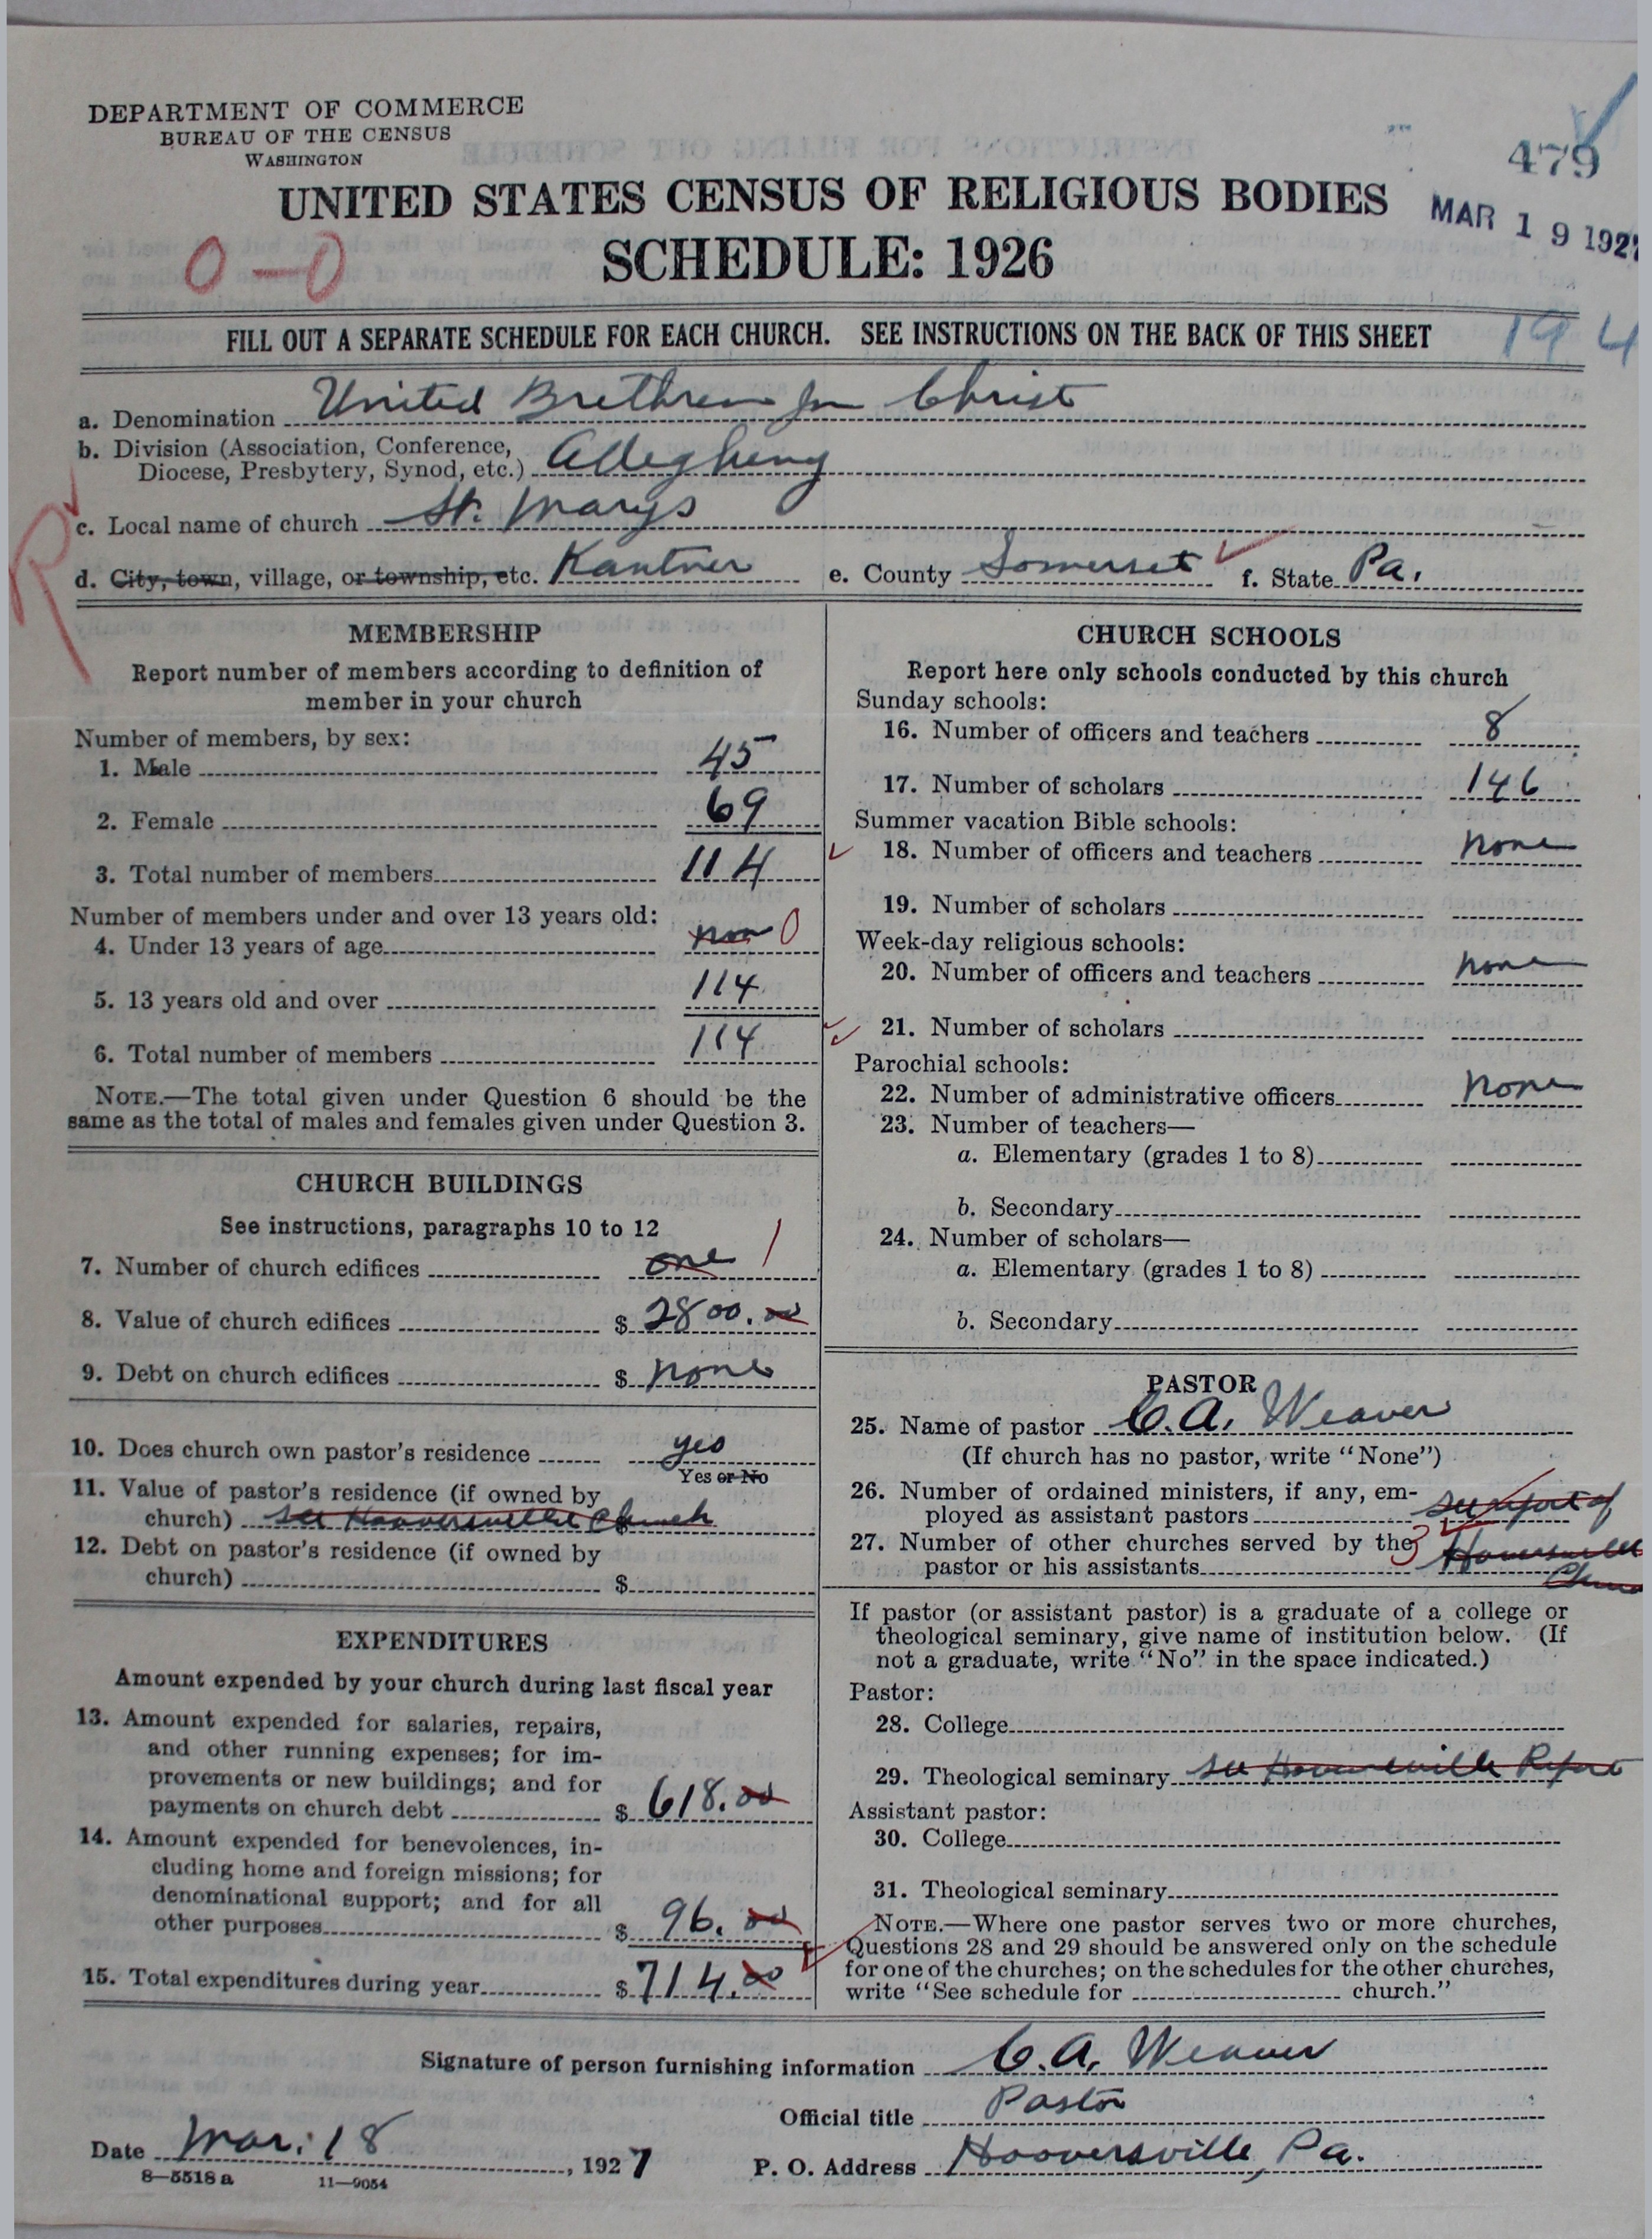 DEPARTMENT OF COMMERCE
BUREAU OF THE CENSUS
WASHINGTON
479
UNITED STATES CENSUS OF RELIGIOUS BODIES
MAR 19 1927
SCHEDULE: 1926
0-0
FILL OUT A SEPARATE SCHEDULE FOR EACH CHURCH. SEE INSTRUCTIONS ON THE BACK OF THIS SHEET
194
a. Denomination United Brethren in Christ
b. Division (Association, Conference,
Diocese, Presbytery, Synod, etc.) Allegheny
R
c. Local name of church St. Marys
d. City, town, village, or township, etc. Kantner e. County Somerset f. State Pa.
MEMBERSHIP
Report number of members according to definition of
member in your church
Number of members, by sex:
1. Male 45
2. Female 69
3. Total number of members 114
Number of members under and over 13 years old:
4. Under 13 years of age non 0
5. 13 years old and over 114
6. Total number of members 114
NOTE.—The total given under Question 6 should be the
same as the total of males and females given under Question 3.
CHURCH BUILDINGS
See instructions, paragraphs 10 to 12
7. Number of church edifices one 1
8. Value of church edifices $ 2800.00
9. Debt on church edifices $ none
10. Does church own pastor's residence yes
Yes or No
11. Value of pastor's residence (if owned by
church) see Hooversville Church $
12. Debt on pastor's residence (if owned by
church) $
EXPENDITURES
Amount expended by your church during last fiscal year
13. Amount expended for salaries, repairs,
and other running expenses; for im-
provements or new buildings; and for
payments on church debt $ 618.00
14. Amount expended for benevolences, in-
cluding home and foreign missions; for
denominational support; and for all
other purposes $ 96.00
15. Total expenditures during year $ 714.00
CHURCH SCHOOLS
Report here only schools conducted by this church
Sunday schools:
16. Number of officers and teachers 8
17. Number of scholars 146
Summer vacation Bible schools:
18. Number of officers and teachers none
19. Number of scholars
Week-day religious schools:
20. Number of officers and teachers none
21. Number of scholars
Parochial schools:
22. Number of administrative officers none
23. Number of teachers—
a. Elementary (grades 1 to 8)
b. Secondary
24. Number of scholars—
a. Elementary (grades 1 to 8)
b. Secondary
PASTOR
25. Name of pastor C. A. Weaver
(If church has no pastor, write "None")
26. Number of ordained ministers, if any, em-
ployed as assistant pastors see report of
27. Number of other churches served by the 3 Hooversville
pastor or his assistants Church
If pastor (or assistant pastor) is a graduate of a college or
theological seminary, give name of institution below. (If
not a graduate, write "No" in the space indicated.)
Pastor:
28. College
29. Theological seminary see Hooversville Report
Assistant pastor:
30. College
31. Theological seminary
NOTE.—Where one pastor serves two or more churches,
Questions 28 and 29 should be answered only on the schedule
for one of the churches; on the schedules for the other churches,
write "See schedule for church."
Signature of person furnishing information C. A. Weaver
Official title Pastor
Date Mar. 18, 1927 P. O. Address Hooversville, Pa.
8—5518 a 11—9054